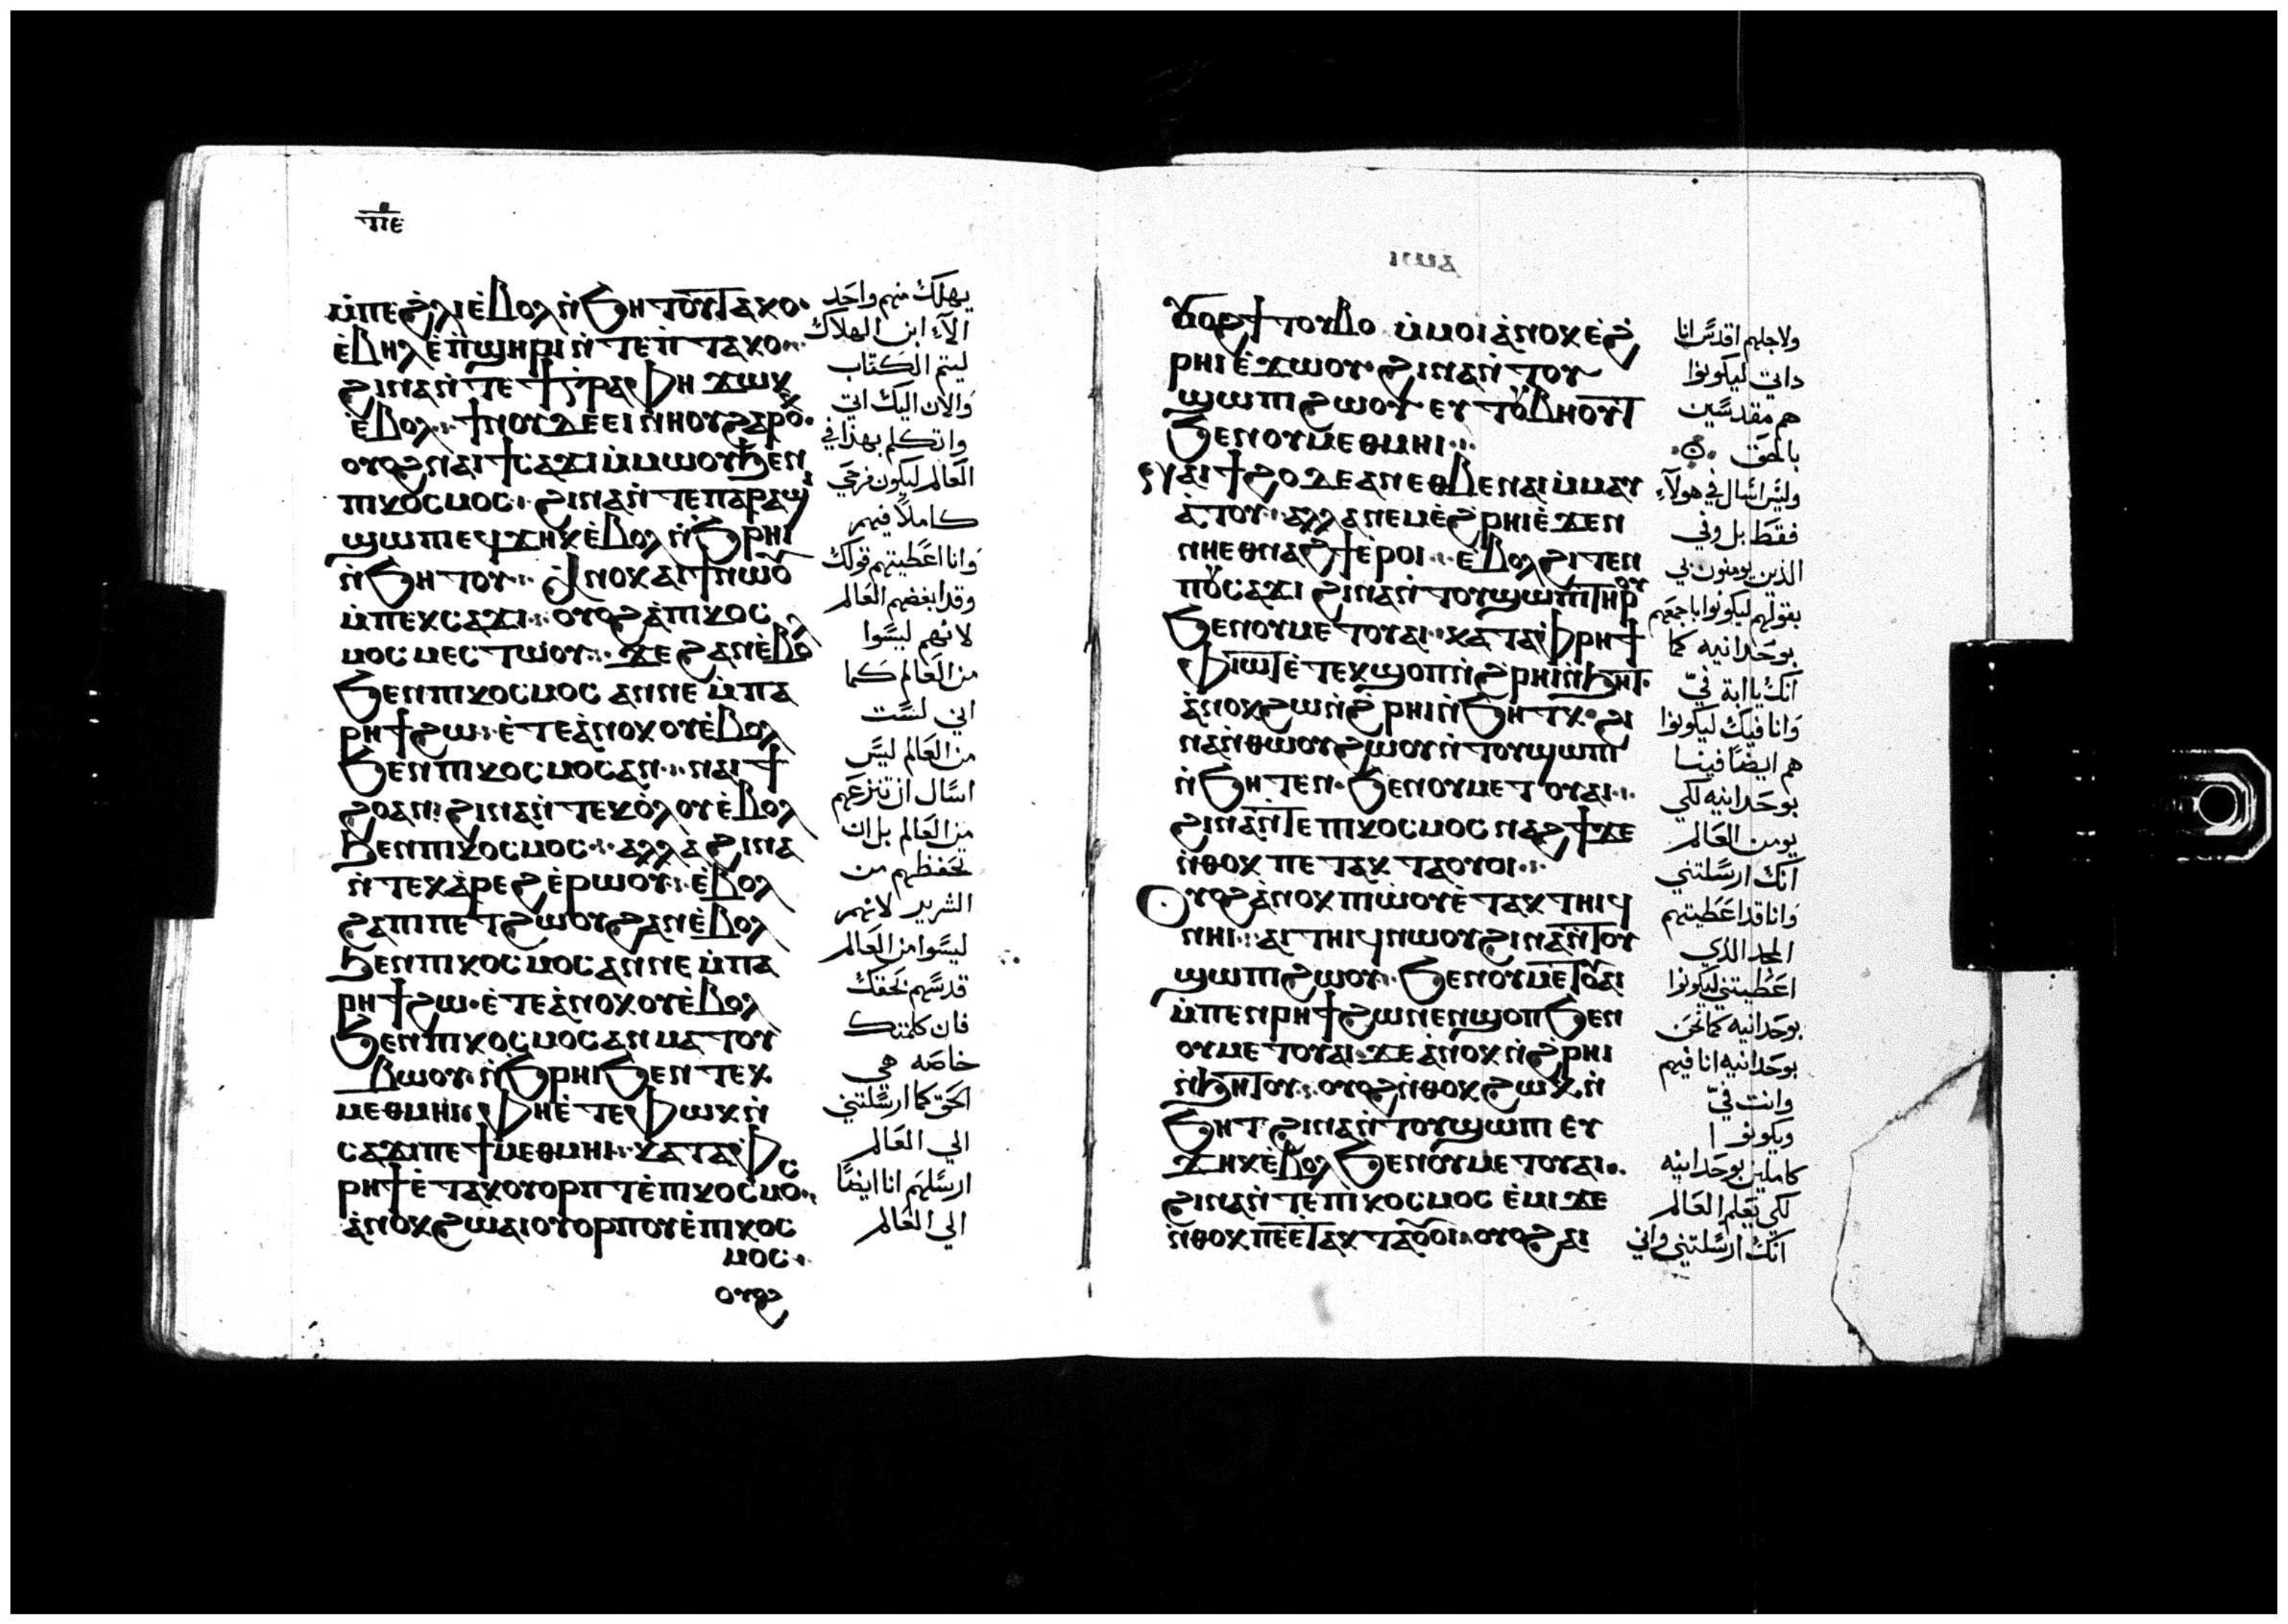 ⲡⲉ
ⲙ̇ⲡⲉϩ̇ⲗⲓ ⲉ̇ⲃⲟⲗ ⲛ̇ϧⲏⲧⲟⲩ ⲧⲁⲕⲟ·
ⲉ̇ⲃⲏⲗ ⲉ̇ⲡ̇ϣⲏⲣⲓ ⲛ̇ⲧⲉⲡ̇ⲧⲁⲕⲟ
ϩⲓⲛⲁ ⲛ̇ⲧⲉ ϯⲅ̇ⲣⲁⲫⲏ ϫⲱⲕ
ⲉ̇ⲃⲟⲗ ϯⲛⲟⲩ ⲇⲉ ⲉⲓⲛⲏⲟⲩ ϩⲁⲣⲟⲕ·
ⲟⲩⲟϩ ⲛⲁⲓ ϯⲥⲁϫⲓ ⲙ̇ⲙⲱⲟⲩ ϧⲉⲛ
ⲡⲓⲕⲟⲥⲙⲟⲥ ϩⲓⲛⲁ ⲛ̇ⲧⲉ ⲡⲁⲣⲁϣⲓ
ϣⲱⲡⲓ ⲉϥϫⲏⲕ ⲉ̇ⲃⲟⲗ ⲛ̇ϧⲣⲏⲓ
ⲛ̇ϧⲏⲧⲟⲩ ⲁⲛⲟⲕ ⲁⲓϯ ⲛⲱⲟⲩ
ⲙ̇ⲡⲉⲕⲥⲁϫⲓ ⲟⲩⲟϩ ⲁ̇ⲡⲓⲕⲟⲥ
ⲙⲟⲥ ⲙⲉⲥⲧⲱⲟⲩ ϫⲉ ϩⲁⲛⲉ̇ⲃⲟⲗ
ϧⲉⲛ ⲡⲓⲕⲟⲥⲙⲟⲥ ⲁⲛⲛⲉ ⲙ̇ⲡⲁ
ⲣⲏϯ ϩⲱ ⲉ̇ⲧⲉ ⲁ̇ⲛⲟⲕ ⲟⲩⲉ̇ⲃⲟⲗ
ϧⲉⲛ ⲡⲓⲕⲟⲥⲙⲟⲥ ⲁⲛ ⲛⲁⲓϯ
ϩⲟ ⲁⲛ ϩⲓⲛⲁ ⲛ̇ⲧⲉⲕⲟ̇ⲗⲟⲩ ⲉ̇ⲃⲟⲗ
ϧⲉⲛ ⲡⲓⲕⲟⲥⲙⲟⲥ ⲁⲗⲗⲁ ϩⲓⲛⲁ
ⲛ̇ⲧⲉⲕⲁ̇ⲣⲉϩ ⲉ̇ⲣⲱⲟⲩ ⲉ̇ⲃⲟⲗ
ϩⲁ ⲡⲓⲡⲉⲧϩⲱⲟⲩ ϩⲁⲛⲉ̇ⲃⲟⲗ
ϧⲉⲛ ⲡⲓⲕⲟⲥⲙⲟⲥ ⲁⲛⲛⲉ ⲙ̇ⲡⲁ
ⲣⲏϯ ϩⲱ· ⲉ̇ⲧⲉ ⲁ̇ⲛⲟⲕ ⲟⲩⲉ̇ⲃⲟⲗ
ϧⲉⲛ ⲡⲓⲕⲟⲥⲙⲟⲥ ⲁⲛ ⲙⲁⲧⲟⲩ
ⲃⲱⲟⲩ ⲛ̇ϧⲣⲏⲓ ϧⲉⲛ ⲧⲉⲕ
ⲙⲉⲑⲙⲏⲓ ⲫⲏⲉ̇ⲧⲉ ⲫⲱⲕ ⲛ̇
ⲥⲁϫⲓ ⲡⲉ ϯⲙⲉⲑⲙⲏⲓ ⲕⲁⲧⲁ ⲫ
ⲣⲏϯ ⲉ̇ⲧⲁⲕⲟⲩⲟⲣⲡⲧ ⲉ̇ⲡⲓⲕⲟⲥⲙⲟⲥ
ⲁ̇ⲛⲟⲕ ϩⲱ ⲁⲓⲟⲩⲟⲣⲡⲟⲩ ⲉ̇ⲡⲓⲕⲟⲥ
ⲙⲟⲥ
ⲟⲩⲟϩ
يهلك منهم واحد
الاّ ابن الهلاك
ليتم الكتاب
والان اليك اتي
واتكلم بهذا في
العالم ليكون فرحي
كاملاً فيهم
وانا اعطيتهم قولك
وقد ابغضهم العالم
لانهم ليسوا
من العالم كما
اني لست
من العالم ليس
اسال ان تنزعهم
من العالم بل ان
تحفظهم من
الشرير لانهم
ليسوا من العالم
قدسهم بحقك
فان كلمتك
خاصه هي
الحق كما ارسلتني
الي العالم
ارسلهم انا ايضاً
الي العالم
ⲟⲩⲟϩ ϯⲧⲟⲩⲃⲟ ⲙ̇ⲙⲟⲓ ⲁ̇ⲛⲟⲕ ⲉ̇ϩ
ⲣⲏⲓ ⲉ̇ϫⲱⲟⲩ ϩⲓⲛⲁ ⲛ̇ⲧⲟⲩ
ϣⲱⲡⲓ ϩⲱⲟⲩ ⲉⲩⲧⲟⲩⲃⲏⲟⲩⲧ
ϧⲉⲛ ⲟⲩⲙⲉⲑⲙⲏⲓ
ⲛⲁⲓϯϩⲟ ⲇⲉ ⲁⲛ ⲉⲑⲃⲉ ⲛⲁⲓ ⲙ̇ⲙⲁⲩ
ⲁ̇ⲧⲟⲩ ⲁⲗⲗⲁ ⲛⲉⲙ ⲉ̇ϩⲣⲏⲓ ⲉ̇ϫⲉⲛ
ⲛⲏⲉⲑⲛⲁϩϯ ⲉ̇ⲣⲟⲓ ⲉ̇ⲃⲟⲗ ϩⲓⲧⲉⲛ
ⲡⲟⲩⲥⲁϫⲓ ϩⲓⲛⲁ ⲛ̇ⲧⲟⲩϣⲱⲡⲓ ⲧⲏⲣⲟⲩ
ϧⲉⲛ ⲟⲩⲙⲉⲧⲟⲩⲁⲓ ⲕⲁⲧⲁ ⲫⲣⲏϯ
ⲫⲓⲱⲧ ⲉ̇ⲧⲉⲕϣⲟⲡ ⲛ̇ϩⲣⲏⲓ ⲛ̇ϧⲏⲧ·
ⲁ̇ⲛⲟⲕ ϩⲱ ⲛ̇ϩⲣⲏⲓ ⲛ̇ϧⲏⲧⲕ· ϩⲓ
ⲛⲁ ⲛ̇ⲑⲱⲟⲩ ϩⲱⲟⲩ ⲛ̇ⲧⲟⲩϣⲱⲡⲓ
ⲛ̇ϧⲏⲧⲉⲛ· ϧⲉⲛ ⲟⲩⲙⲉⲧⲟⲩⲁⲓ
ϩⲓⲛⲁ ⲛ̇ⲧⲉ ⲡⲓⲕⲟⲥⲙⲟⲥ ⲛⲁϩϯ ϫⲉ
ⲛ̇ⲑⲟⲕ ⲡⲉⲧⲁⲕⲧⲁⲟⲩⲟⲓ
ⲟⲩⲟϩ ⲁ̇ⲛⲟⲕ ⲡⲓⲱ̇ⲟⲩ ⲉ̇ⲧⲁⲕⲧⲏⲓϥ
ⲛⲏⲓ ⲁⲓⲧⲏⲓϥ ⲛⲱⲟⲩ ϩⲓⲛⲁ ⲛ̇ⲧⲟⲩ
ϣⲱⲡⲓ ϩⲱⲟⲩ ϧⲉⲛ ⲟⲩⲙⲉⲧⲟⲩⲁⲓ
ⲙ̇ⲡⲉⲛⲣⲏϯ ϩⲱⲛ ⲉⲛϣⲟⲡ ϧⲉⲛ
ⲟⲩⲙⲉⲧⲟⲩⲁⲓ ϫⲉ ⲁ̇ⲛⲟⲕ ⲛ̇ϩⲣⲏⲓ
ⲛ̇ϧⲏⲧⲟⲩ ⲟⲩⲟϩ ⲛ̇ⲑⲟⲕ ϩⲱⲕ ⲛ̇
ϧⲏⲧ ϩⲓⲛⲁ ⲛ̇ⲧⲟⲩϣⲱⲡⲓ ⲉⲩ
ϫⲏⲕ ⲉ̇ⲃⲟⲗ ϧⲉⲛ ⲟⲩⲙⲉⲧⲟⲩⲁⲓ
ϩⲓⲛⲁ ⲛ̇ⲧⲉ ⲡⲓⲕⲟⲥⲙⲟⲥ ⲉ̇ⲙⲓ ϫⲉ
ⲛ̇ⲑⲟⲕ ⲡⲉⲉ̇ⲧⲁⲕⲧⲁⲟⲩⲟⲓ ⲟⲩⲟϩ ⲁⲓ
ولاجلهم اقدس انا
داتي ليكونوا
هم مقدسين
بالحق
وليس اسال في هولاء
فقط بل وفي
الذين يومنون بي
بقولهم ليكونوا باجمعهم
بوحدانيه كما
انك يا ابة فيّ
وانا فيك ليكونوا
هم ايضاً فينا
بوحدانيه لكي
يومن العالم
انك ارسلتني
وانا قد اعطيتهم
المجد الذي
اعطيتني ليكونوا
بوحدانيه كما نحن
بوحدانيه انا فيهم
وانت فيّ
ويكونوا
كاملين بوحدانيه
لكي يعلم العالم
انك ارسلتني واني